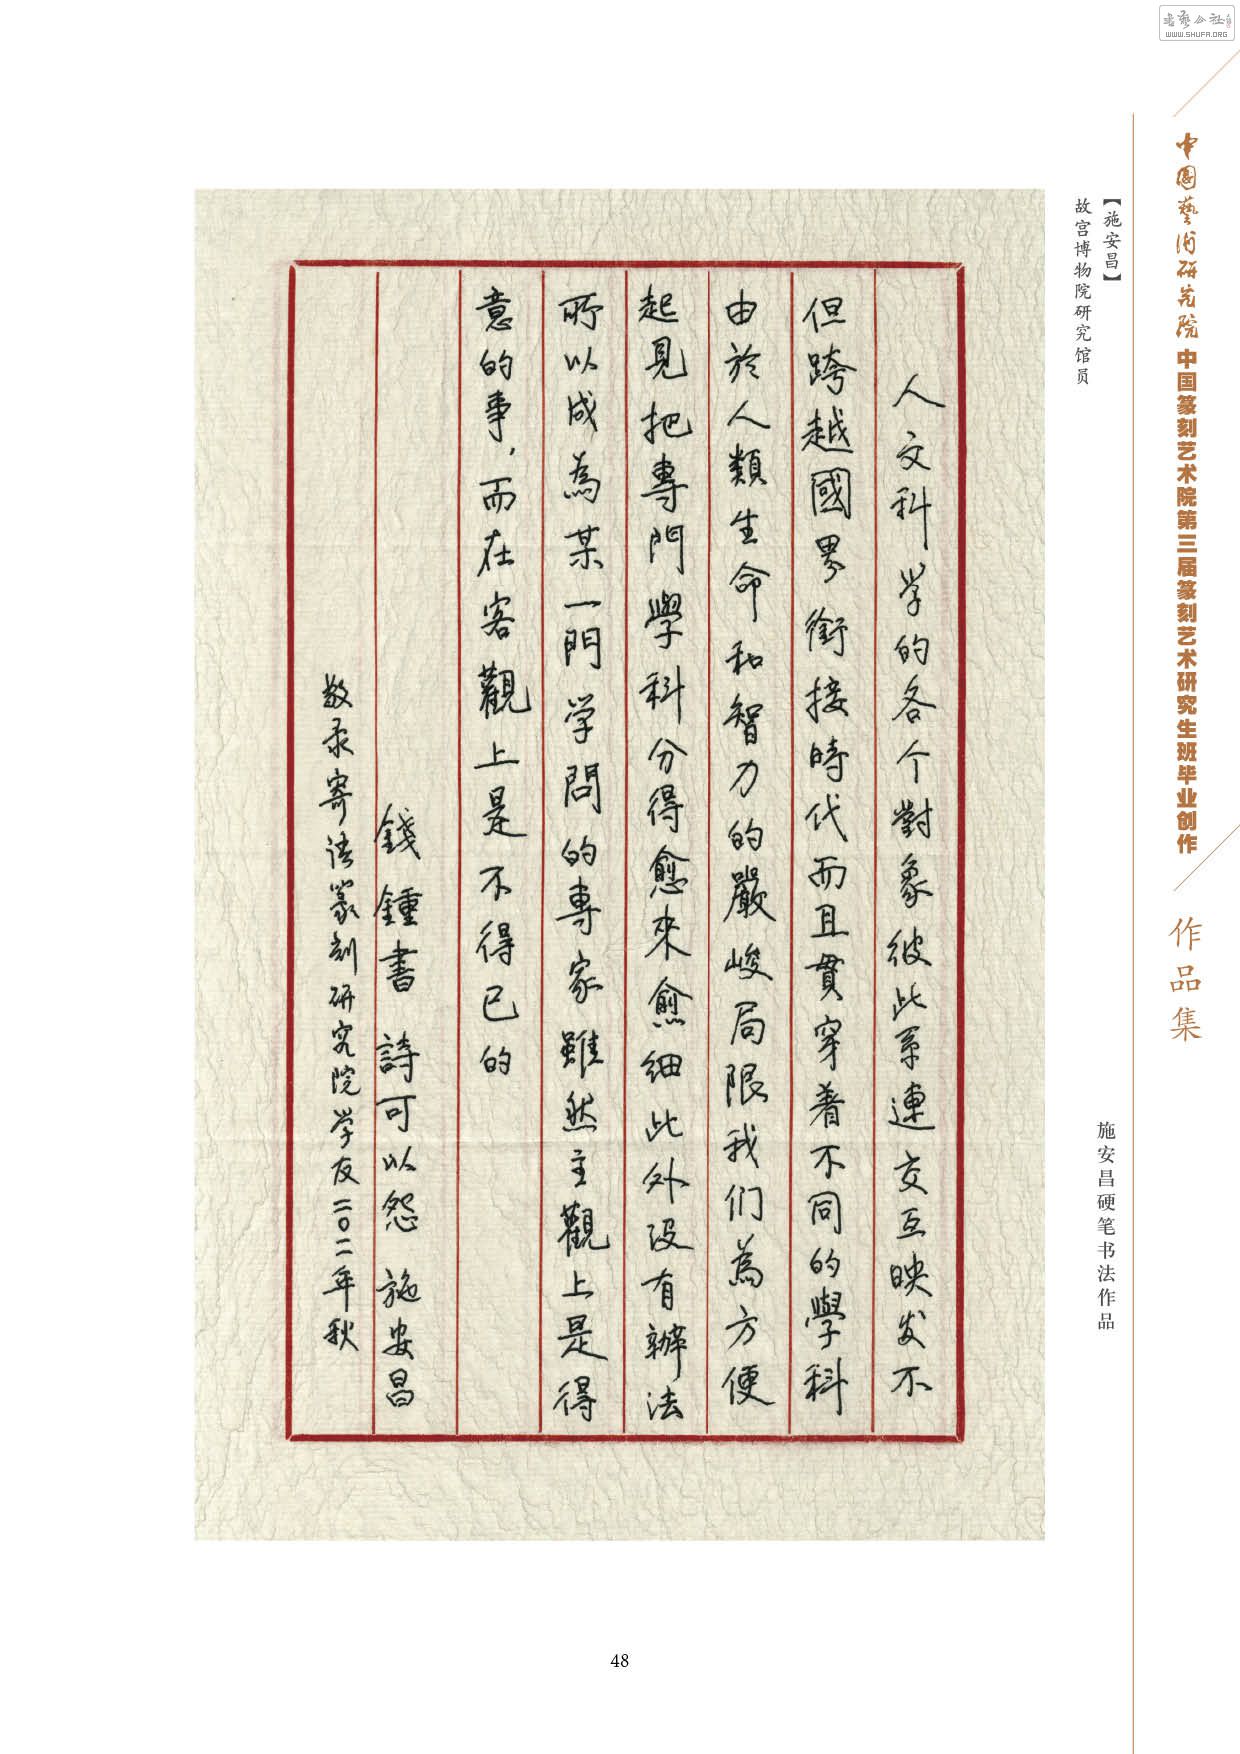 书艺公社
WWW.SHUFA.ORG
中国艺术研究院 中国篆刻艺术院第三届篆刻艺术研究生班毕业创作
作品集
【施安昌】
故宫博物院研究馆员
施安昌硬笔书法作品
人文科学的各个對象彼此系連交互映发不
但跨越國界銜接時代而且貫穿着不同的學科
由於人類生命和智力的嚴峻局限我们為方便
起見把專門學科分得愈來愈細此外没有辦法
所以成為某一門学問的專家雖然主觀上是得
意的事，而在客觀上是不得已的
錢鍾書 詩可以怨 施安昌
敬录寄语篆刻研究院学友二〇一二年秋
48